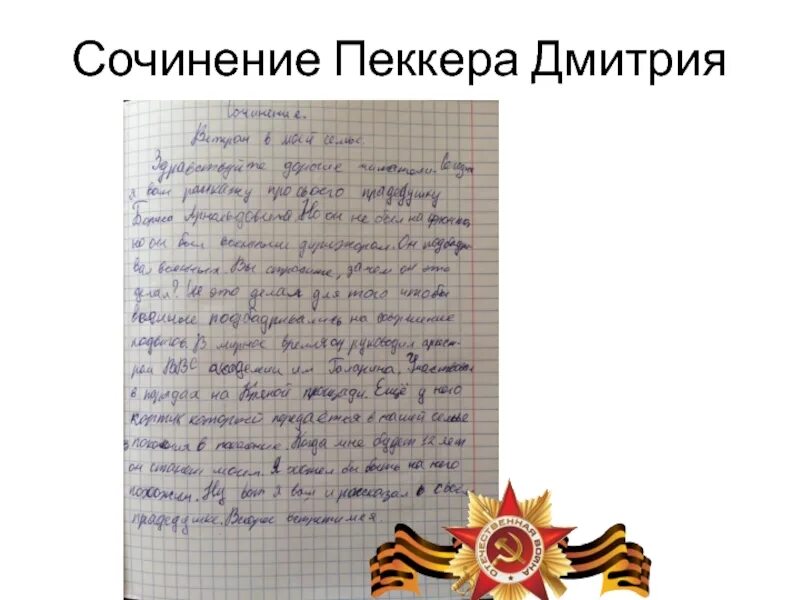 Сочинение Пеккера Дмитрия
Сочинение.
Ветеран в моей семье.
Здравствуйте дорогие читатели. Сегодня
я вам расскажу про своего прадедушку
Бориса Арнольдовича. Но он не был на фронте,
но он был военным дирижором. Он подбадри
вал военных. Вы спросите, зачем он это
делал? Он это делал для того чтобы
военные подбадривались на совершение
подвигов. В мирное время он руководил оркест-
ром ВВС академии им Гагарина. Участвовал
в парадах на Красной площади. Ещё у него
кортик который передаётся в нашей семье
из поколения в поколение. Когда мне будет 12 лет
он станет моим. Я хотел бы быть на него
похожим. Ну вот я вам и рассказал о своём
прадедушке. Встретимся.
ОТЕЧЕСТВЕННАЯ ВОЙНА